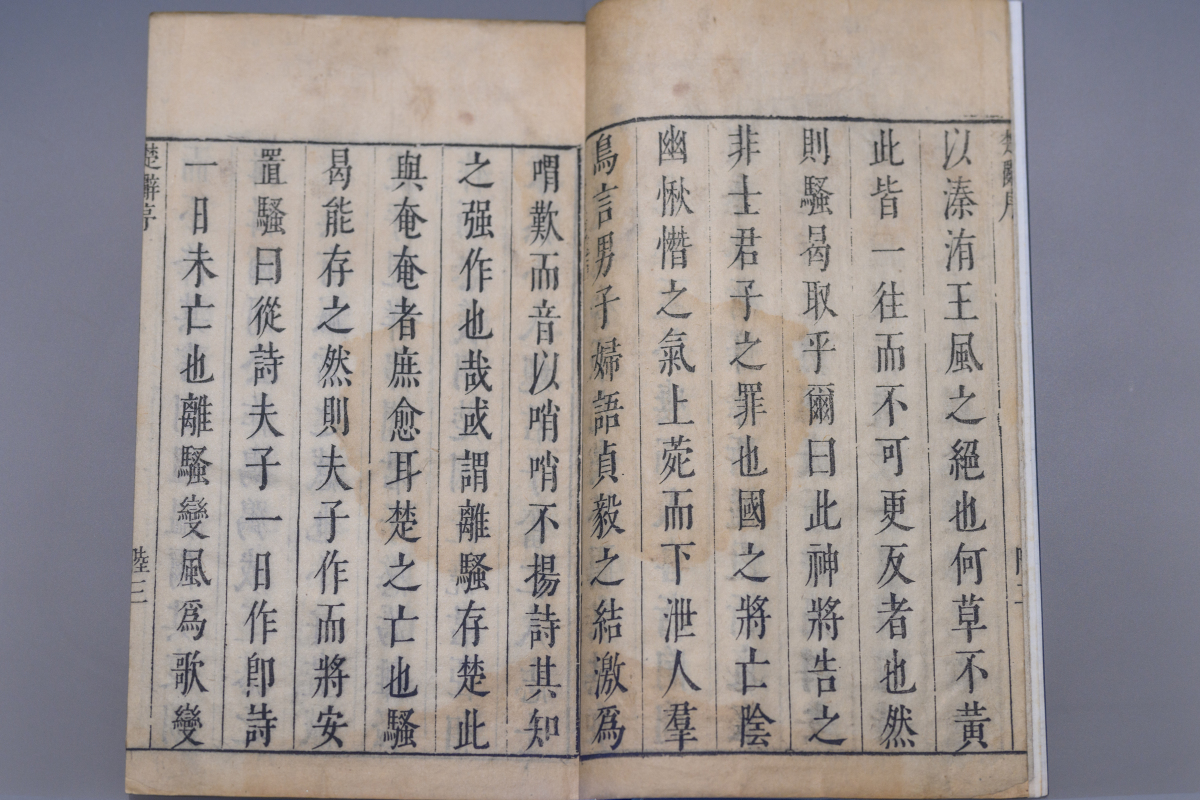 以溱洧王風之絕也何草不黃
此皆一往而不可更反者也然
則騷曷取乎爾曰此神將告之
非士君子之罪也國之將亡陰
幽愀憯之氣上菀而下泄人羣
鳥言男子婦語貞毅之結激爲
喟歎而音以哨哨不揚詩其知
之强作也哉或謂離騷存楚此
與奄奄者庶愈耳楚之亡也騷
曷能存之然則夫子作而將安
置騷曰從詩夫子一日作卽詩
一日未亡也離騷變風爲歌變
楚辭序
陸三